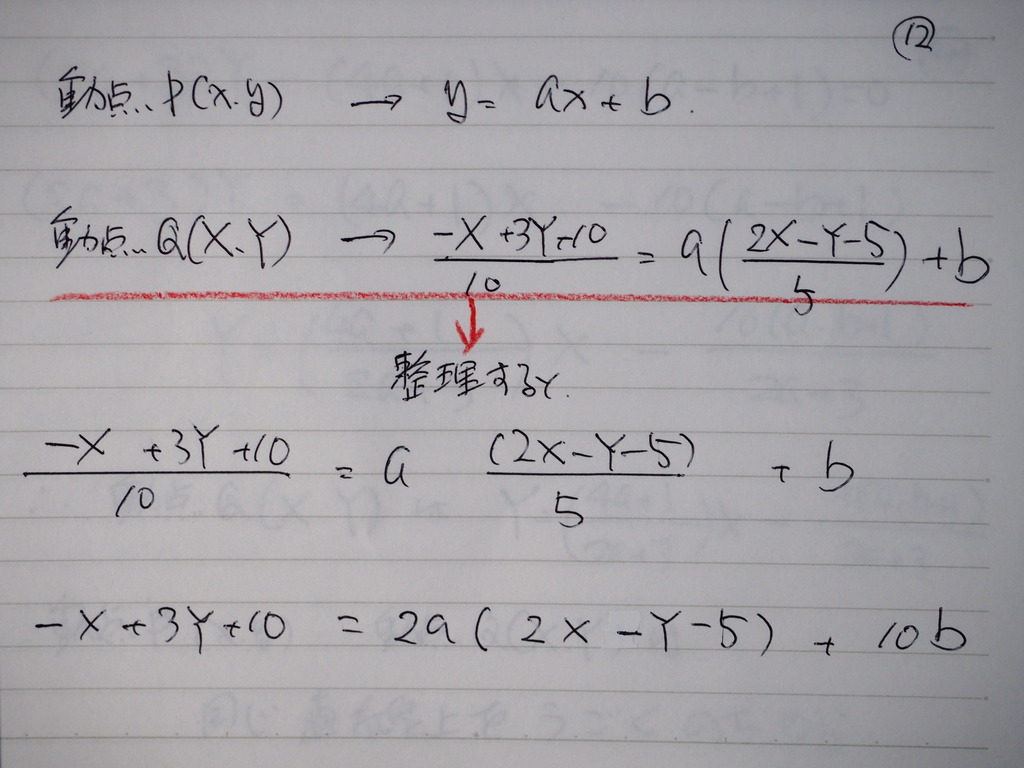 ⑫
動点‥P(x.y) → y= ax+b.
動点‥Q(X.Y) → \frac{-X+3Y+10}{10} = a(\frac{2X-Y-5}{5})+b
整理すると.
\frac{-X+3Y+10}{10} = a \frac{(2X-Y-5)}{5} + b
-X+3Y+10 = 2a(2X-Y-5) + 10b